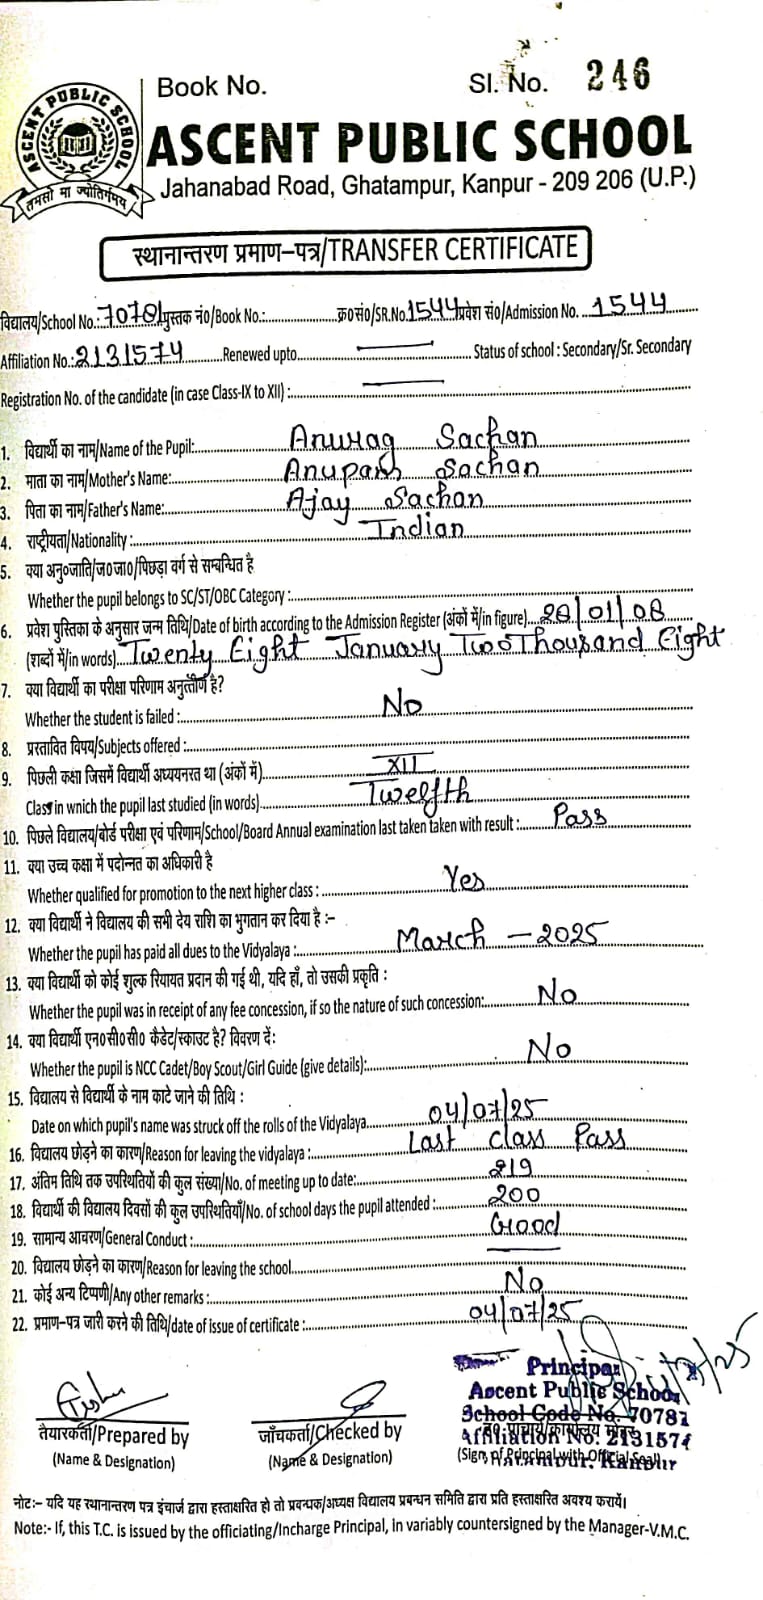 Book No. Sl. No. 246
ASCENT PUBLIC SCHOOL
तमसो मा ज्योतिर्गमय
ASCENT PUBLIC SCHOOL
Jahanabad Road, Ghatampur, Kanpur - 209 206 (U.P.)
स्थानान्तरण प्रमाण-पत्र/TRANSFER CERTIFICATE
विद्यालय/School No.: 70781 पुस्तक नं०/Book No.: क्र०सं०/SR.No. 1544 प्रवेश सं०/Admission No. 1544
Affiliation No.: 2131574 Renewed upto Status of school : Secondary/Sr. Secondary
Registration No. of the candidate (in case Class-IX to XII) :
1. विद्यार्थी का नाम/Name of the Pupil: Anurag Sachan
2. माता का नाम/Mother's Name: Sachan
3. पिता का नाम/Father's Name: Ajay Sachan
4. राष्ट्रीयता/Nationality : Indian
5. क्या अनु०जाति/ज०जा०/पिछड़ा वर्ग से सम्बन्धित है
Whether the pupil belongs to SC/ST/OBC Category :
6. प्रवेश पुस्तिका के अनुसार जन्म तिथि/Date of birth according to the Admission Register (अंकों में/in figure) 28/01/08
(शब्दों में/in words) Twenty Eight January Two Thousand Eight
7. क्या विद्यार्थी का परीक्षा परिणाम अनुत्तीर्ण है?
Whether the student is failed : No
8. प्रस्तावित विषय/Subjects offered :
9. पिछली कक्षा जिसमें विद्यार्थी अध्ययनरत था (अंकों में) XII
Class in wnich the pupil last studied (in words) Twelfth
10. पिछले विद्यालय/बोर्ड परीक्षा एवं परिणाम/School/Board Annual examination last taken taken with result : Pass
11. क्या उच्च कक्षा में पदोन्नत का अधिकारी है
Whether qualified for promotion to the next higher class : Yes
12. क्या विद्यार्थी ने विद्यालय की सभी देय राशि का भुगतान कर दिया है :-
Whether the pupil has paid all dues to the Vidyalaya : March - 2025
13. क्या विद्यार्थी को कोई शुल्क रियायत प्रदान की गई थी, यदि हाँ, तो उसकी प्रकृति :
Whether the pupil was in receipt of any fee concession, if so the nature of such concession: No
14. क्या विद्यार्थी एन०सी०सी० कैडेट/स्काउट है? विवरण दें:
Whether the pupil is NCC Cadet/Boy Scout/Girl Guide (give details): No
15. विद्यालय से विद्यार्थी के नाम काटे जाने की तिथि :
Date on which pupil's name was struck off the rolls of the Vidyalaya 04/07/25
16. विद्यालय छोड़ने का कारण/Reason for leaving the vidyalaya : Last class Pass
17. अंतिम तिथि तक उपस्थितियों की कुल संख्या/No. of meeting up to date: 219
18. विद्यार्थी की विद्यालय दिवसों की कुल उपस्थितियाँ/No. of school days the pupil attended : 200
19. सामान्य आचरण/General Conduct : Good
20. विद्यालय छोड़ने का कारण/Reason for leaving the school
21. कोई अन्य टिप्पणी/Any other remarks : No
22. प्रमाण-पत्र जारी करने की तिथि/date of issue of certificate : 04/07/25
Principal
Ascent Public School
School Code No. 70781
Affiliation No. 2131574
Kanpur
तैयारकर्ता/Prepared by जाँचकर्ता/Checked by
(Name & Designation) (Name & Designation) (Sign. of Principal with Official Seal)
नोट:- यदि यह स्थानान्तरण पत्र इंचार्ज द्वारा हस्ताक्षरित हो तो प्रबन्धक/अध्यक्ष विद्यालय प्रबन्धन समिति द्वारा प्रति हस्ताक्षरित अवश्य करायें।
Note:- If, this T.C. is issued by the officiating/Incharge Principal, in variably countersigned by the Manager-V.M.C.